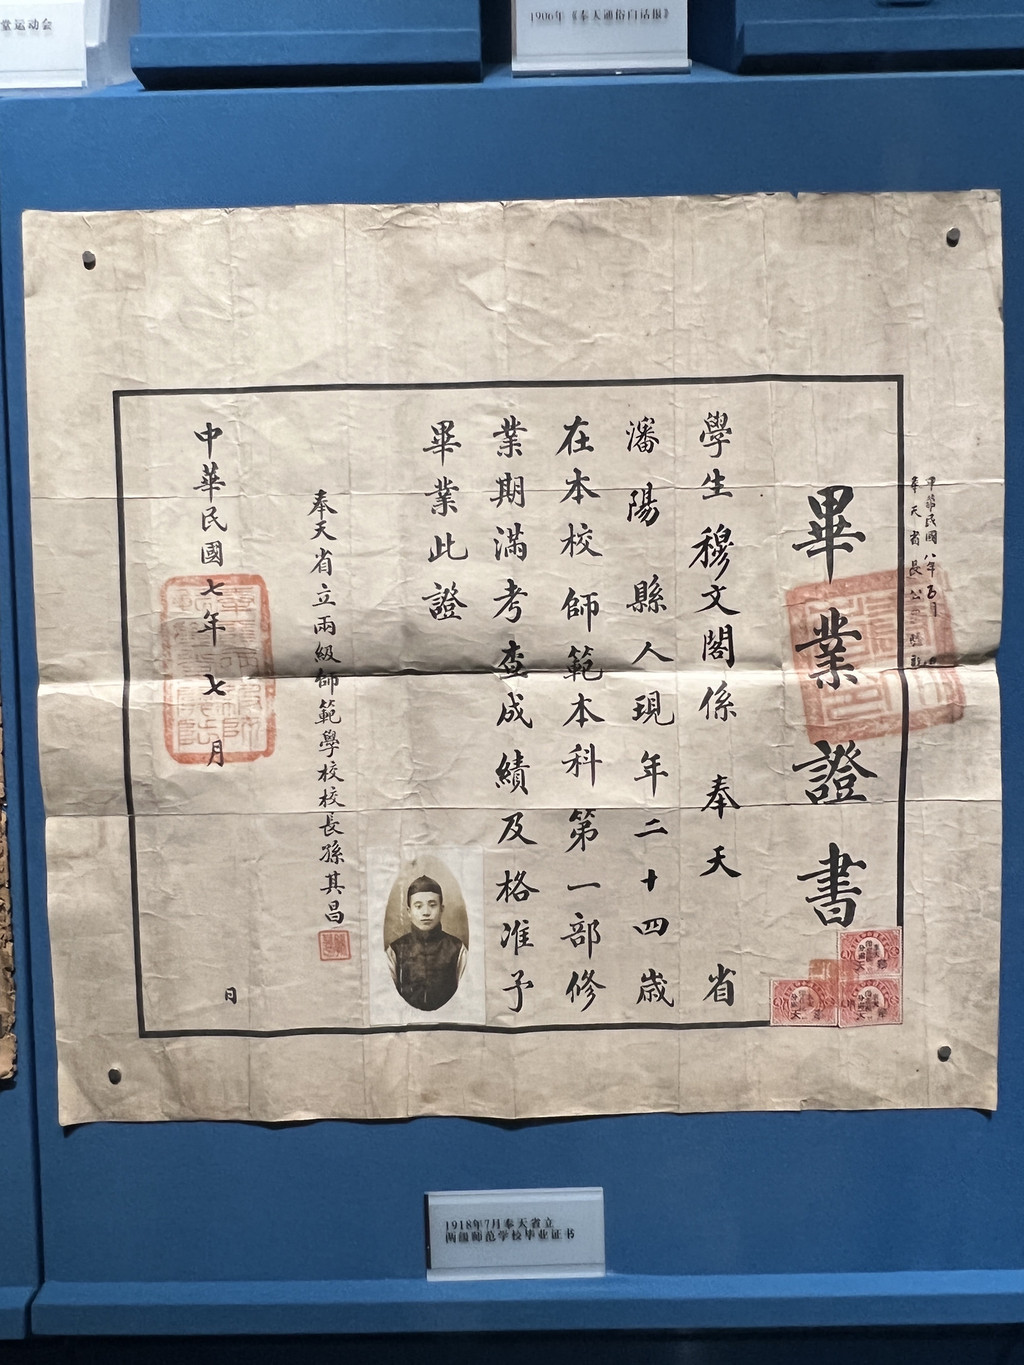 堂运动会
1906年《奉天通俗白话报》
畢業證書
學生穆文閣係奉天省
瀋陽縣人現年二十四歲
在本校師範本科第一部修
業期滿考查成績及格准予
畢業此證
奉天省立兩級師範學校校長孫其昌
中華民國七年七月
日
中華民國八年
奉天省長公
1918年7月奉天省立
两级师范学校毕业证书